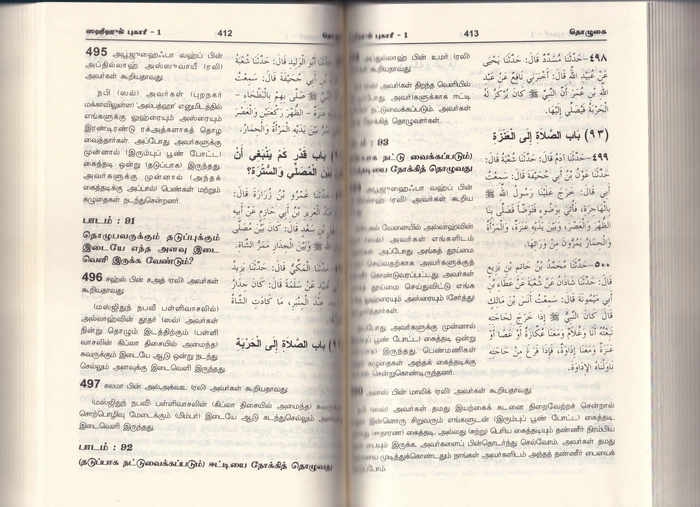 ஸஹீஹுல் புகாரீ - 1
412
495 அபூஜுஹைஃபா வஹ்ப் பின்
அப்தில்லாஹ் அஸ்ஸுவாயீ (ரலி)
அவர்கள் கூறியதாவது:
நபி (ஸல்) அவர்கள் (புறநகர்
மக்காவிலுள்ள) அல்பத்ஹா எனுமிடத்தில்
எங்களுக்கு லுஹ்ரையும் அஸ்ரையும்
இரண்டிரண்டு ரக்அத்களாகத் தொழ
வைத்தார்கள். அப்போது அவர்களுக்கு
முன்னால் (இரும்புப் பூண் போட்ட)
கைத்தடி ஒன்று (தடுப்பாக) இருந்தது.
அவர்களுக்கு முன்னால் (அந்தக்
கைத்தடிக்கு அப்பால்) பெண்கள் மற்றும்
கழுதைகள் நடந்துசென்றனர்.
பாடம் : 91
தொழுபவருக்கும் தடுப்புக்கும்
இடையே எந்த அளவு இடை
வெளி இருக்க வேண்டும்?
496 சஹ்ல் பின் சஅத் (ரலி) அவர்கள்
கூறியதாவது:
(மஸ்ஜிதுந் நபவீ பள்ளிவாசலில்)
அல்லாஹ்வின் தூதர் (ஸல்) அவர்கள்
நின்று தொழும் இடத்திற்கும் (பள்ளி
வாசலின் கிப்லா திசையில் அமைந்த)
சுவருக்கும் இடையே ஆடு ஒன்று நடந்து
செல்லும் அளவுக்கு இடைவெளி இருந்தது.
حَدَّثَنَا شُعْبَةُ
أَبِي جُحَيْفَةَ قَالَ: سَمِعْتُ
صَلَّى بِهِمْ بِالْبَطْحَاءِ -
عَنَزَةٌ - الظُّهْرَ رَكْعَتَيْنِ وَالْعَصْرَ
بَيْنَ يَدَيْهِ الْمَرْأَةُ وَالْحِمَارُ.
بَابُ قَدْرِ كَمْ يَنْبَغِي أَنْ
بَيْنَ الْمُصَلِّي وَالسُّتْرَةِ؟
عَمْرُو بْنُ زُرَارَةَ قَالَ:
الْعَزِيزِ بْنُ أَبِي حَازِمٍ عَنْ أَبِيهِ
بْنِ سَعْدٍ قَالَ: كَانَ بَيْنَ مُصَلَّى
وَبَيْنَ الْجِدَارِ مَمَرُّ الشَّاةِ.
حَدَّثَنَا الْمَكِّيُّ قَالَ: حَدَّثَنَا يَزِيدُ
عَنْ سَلَمَةَ قَالَ: كَانَ جِدَارُ
عِنْدَ الْمِنْبَرِ مَا كَادَتِ الشَّاةُ
بَابُ الصَّلَاةِ إِلَى الْحَرْبَةِ
497 சலமா பின் அல்அக்வஉ (ரலி) அவர்கள் கூறியதாவது:
(மஸ்ஜிதுந் நபவீ பள்ளிவாசலின் (கிப்லா திசையில் அமைந்த)
சொற்பொழிவு மேடைக்கும் (மிம்பர்) இடையே ஆடு கடந்துசெல்லும்
இடைவெளி இருந்தது.
பாடம் : 92
(தடுப்பாக நட்டுவைக்கப்படும்) ஈட்டியை நோக்கித் தொழுவது
புகாரீ - 1
413
தொழுகை
பின் உமர் (ரலி)
கூறியதாவது:
அவர்கள் திறந்த வெளியில்
அவர்களுக்காக ஈட்டி
நட்டுவைக்கப்படும் அவர்கள்
தொழுவார்கள்.
93
நட்டு வைக்கப்படும்)
நோக்கித் தொழுவது
அபூஜுஹைஃபா வஹ்ப் பின்
(ரலி) அவர்கள் கூறிய
வேளையில் அல்லாஹ்வின்
அவர்கள் எங்களிடம்
அப்போது அங்கத் தூய்மை
செய்வதற்காக அவர்களுக்குத்
கொண்டுவரப்பட்டது. அவர்கள்
தூய்மை செய்துவிட்டு எங்க
அஸ்ரையும் (சேர்த்து)
அவர்களுக்கு முன்னால்
பூண் போட்ட) கைத்தடி ஒன்று
இருந்தது. பெண்மணிகள்
அந்தக் கைத்தடிக்கு
சென்றுகொண்டிருந்தனர்.
٤٩٨- حَدَّثَنَا مُسَدَّدٌ قَالَ: حَدَّثَنَا يَحْيَى
عَنْ عُبَيْدِ اللهِ قَالَ: أَخْبَرَنِي نَافِعٌ عَنْ عَبْدِ
اللهِ بْنِ عُمَرَ أَنَّ النَّبِيَّ ﷺ كَانَ يُرْكَزُ لَهُ
الْحَرْبَةُ فَيُصَلِّي إِلَيْهَا.
(٩٣) بَابُ الصَّلَاةِ إِلَى الْعَنَزَةِ
٤٩٩- حَدَّثَنَا آدَمُ قَالَ: حَدَّثَنَا شُعْبَةُ قَالَ:
حَدَّثَنَا عَوْنُ بْنُ أَبِي جُحَيْفَةَ قَالَ: سَمِعْتُ
أَبِي قَالَ: خَرَجَ عَلَيْنَا رَسُولُ اللهِ ﷺ
بِالْهَاجِرَةِ، فَأُتِيَ بِوَضُوءٍ فَتَوَضَّأَ فَصَلَّى بِنَا
الظُّهْرَ وَالْعَصْرَ، وَبَيْنَ يَدَيْهِ عَنَزَةٌ، وَالْمَرْأَةُ
وَالْحِمَارُ يَمُرُّونَ مِنْ وَرَائِهَا.
٥٠٠- حَدَّثَنَا مُحَمَّدُ بْنُ حَاتِمِ بْنِ بَزِيعٍ
قَالَ: حَدَّثَنَا شَاذَانُ عَنْ شُعْبَةَ عَنْ عَطَاءِ بْنِ
أَبِي مَيْمُونَةَ قَالَ: سَمِعْتُ أَنَسَ بْنَ مَالِكٍ
قَالَ: كَانَ النَّبِيُّ ﷺ إِذَا خَرَجَ لِحَاجَتِهِ
تَبِعْتُهُ أَنَا وَغُلَامٌ وَمَعَنَا عُكَّازَةٌ أَوْ عَصًا أَوْ
عَنَزَةٌ وَمَعَنَا إِدَاوَةٌ، فَإِذَا فَرَغَ مِنْ حَاجَتِهِ
نَاوَلْنَاهُ الْإِدَاوَةَ.
அனஸ் பின் மாலிக் (ரலி) அவர்கள் கூறியதாவது:
(ஸல்) அவர்கள் தமது இயற்கைக் கடனை நிறைவேற்றச் சென்றால்
இன்னொரு சிறுவரும் எங்களுடன் (இரும்புப் பூண் போட்ட) கைத்தடி,
(சாதாரண) கைத்தடி, அல்லது (சற்று) பெரிய கைத்தடியும் தண்ணீர் நிரம்பிய
இருக்க அவர்களைப் பின்தொடர்ந்து செல்வோம். அவர்கள் தமது
முடித்துக்கொண்டதும் நாங்கள் அவர்களிடம் அந்தத் தண்ணீர் பையைக்